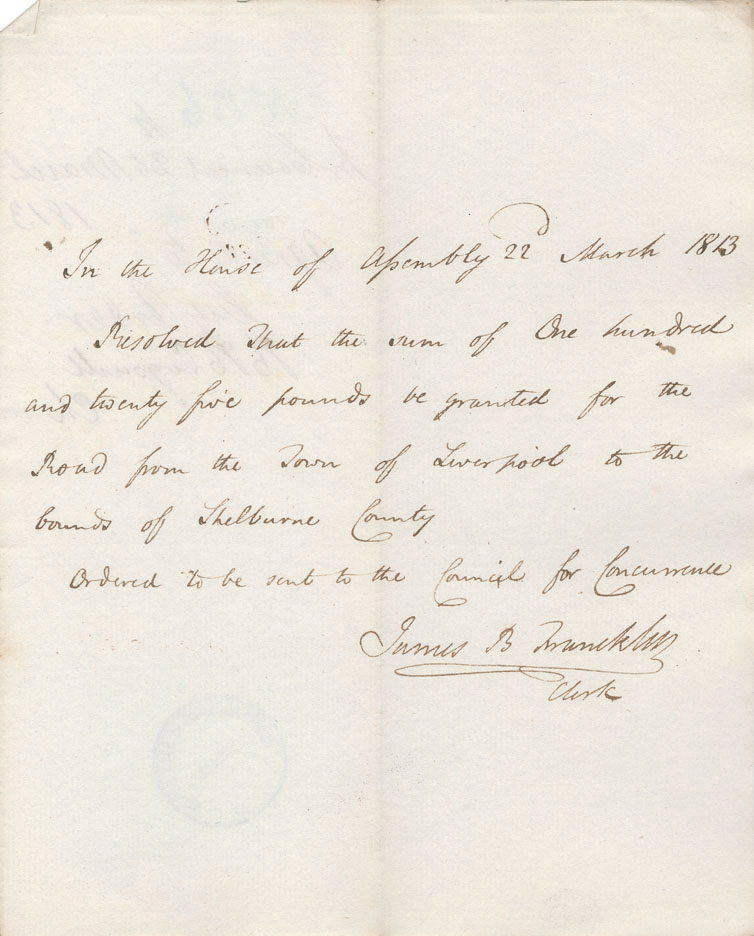 In the House of Assembly 22d March 1813
Resolved That the sum of One hundred
and twenty five pounds be granted for the
Road from the Town of Liverpool to the
bounds of Shelburne County
Ordered to be sent to the Council for Concurrence
James B Francklin
Clerk